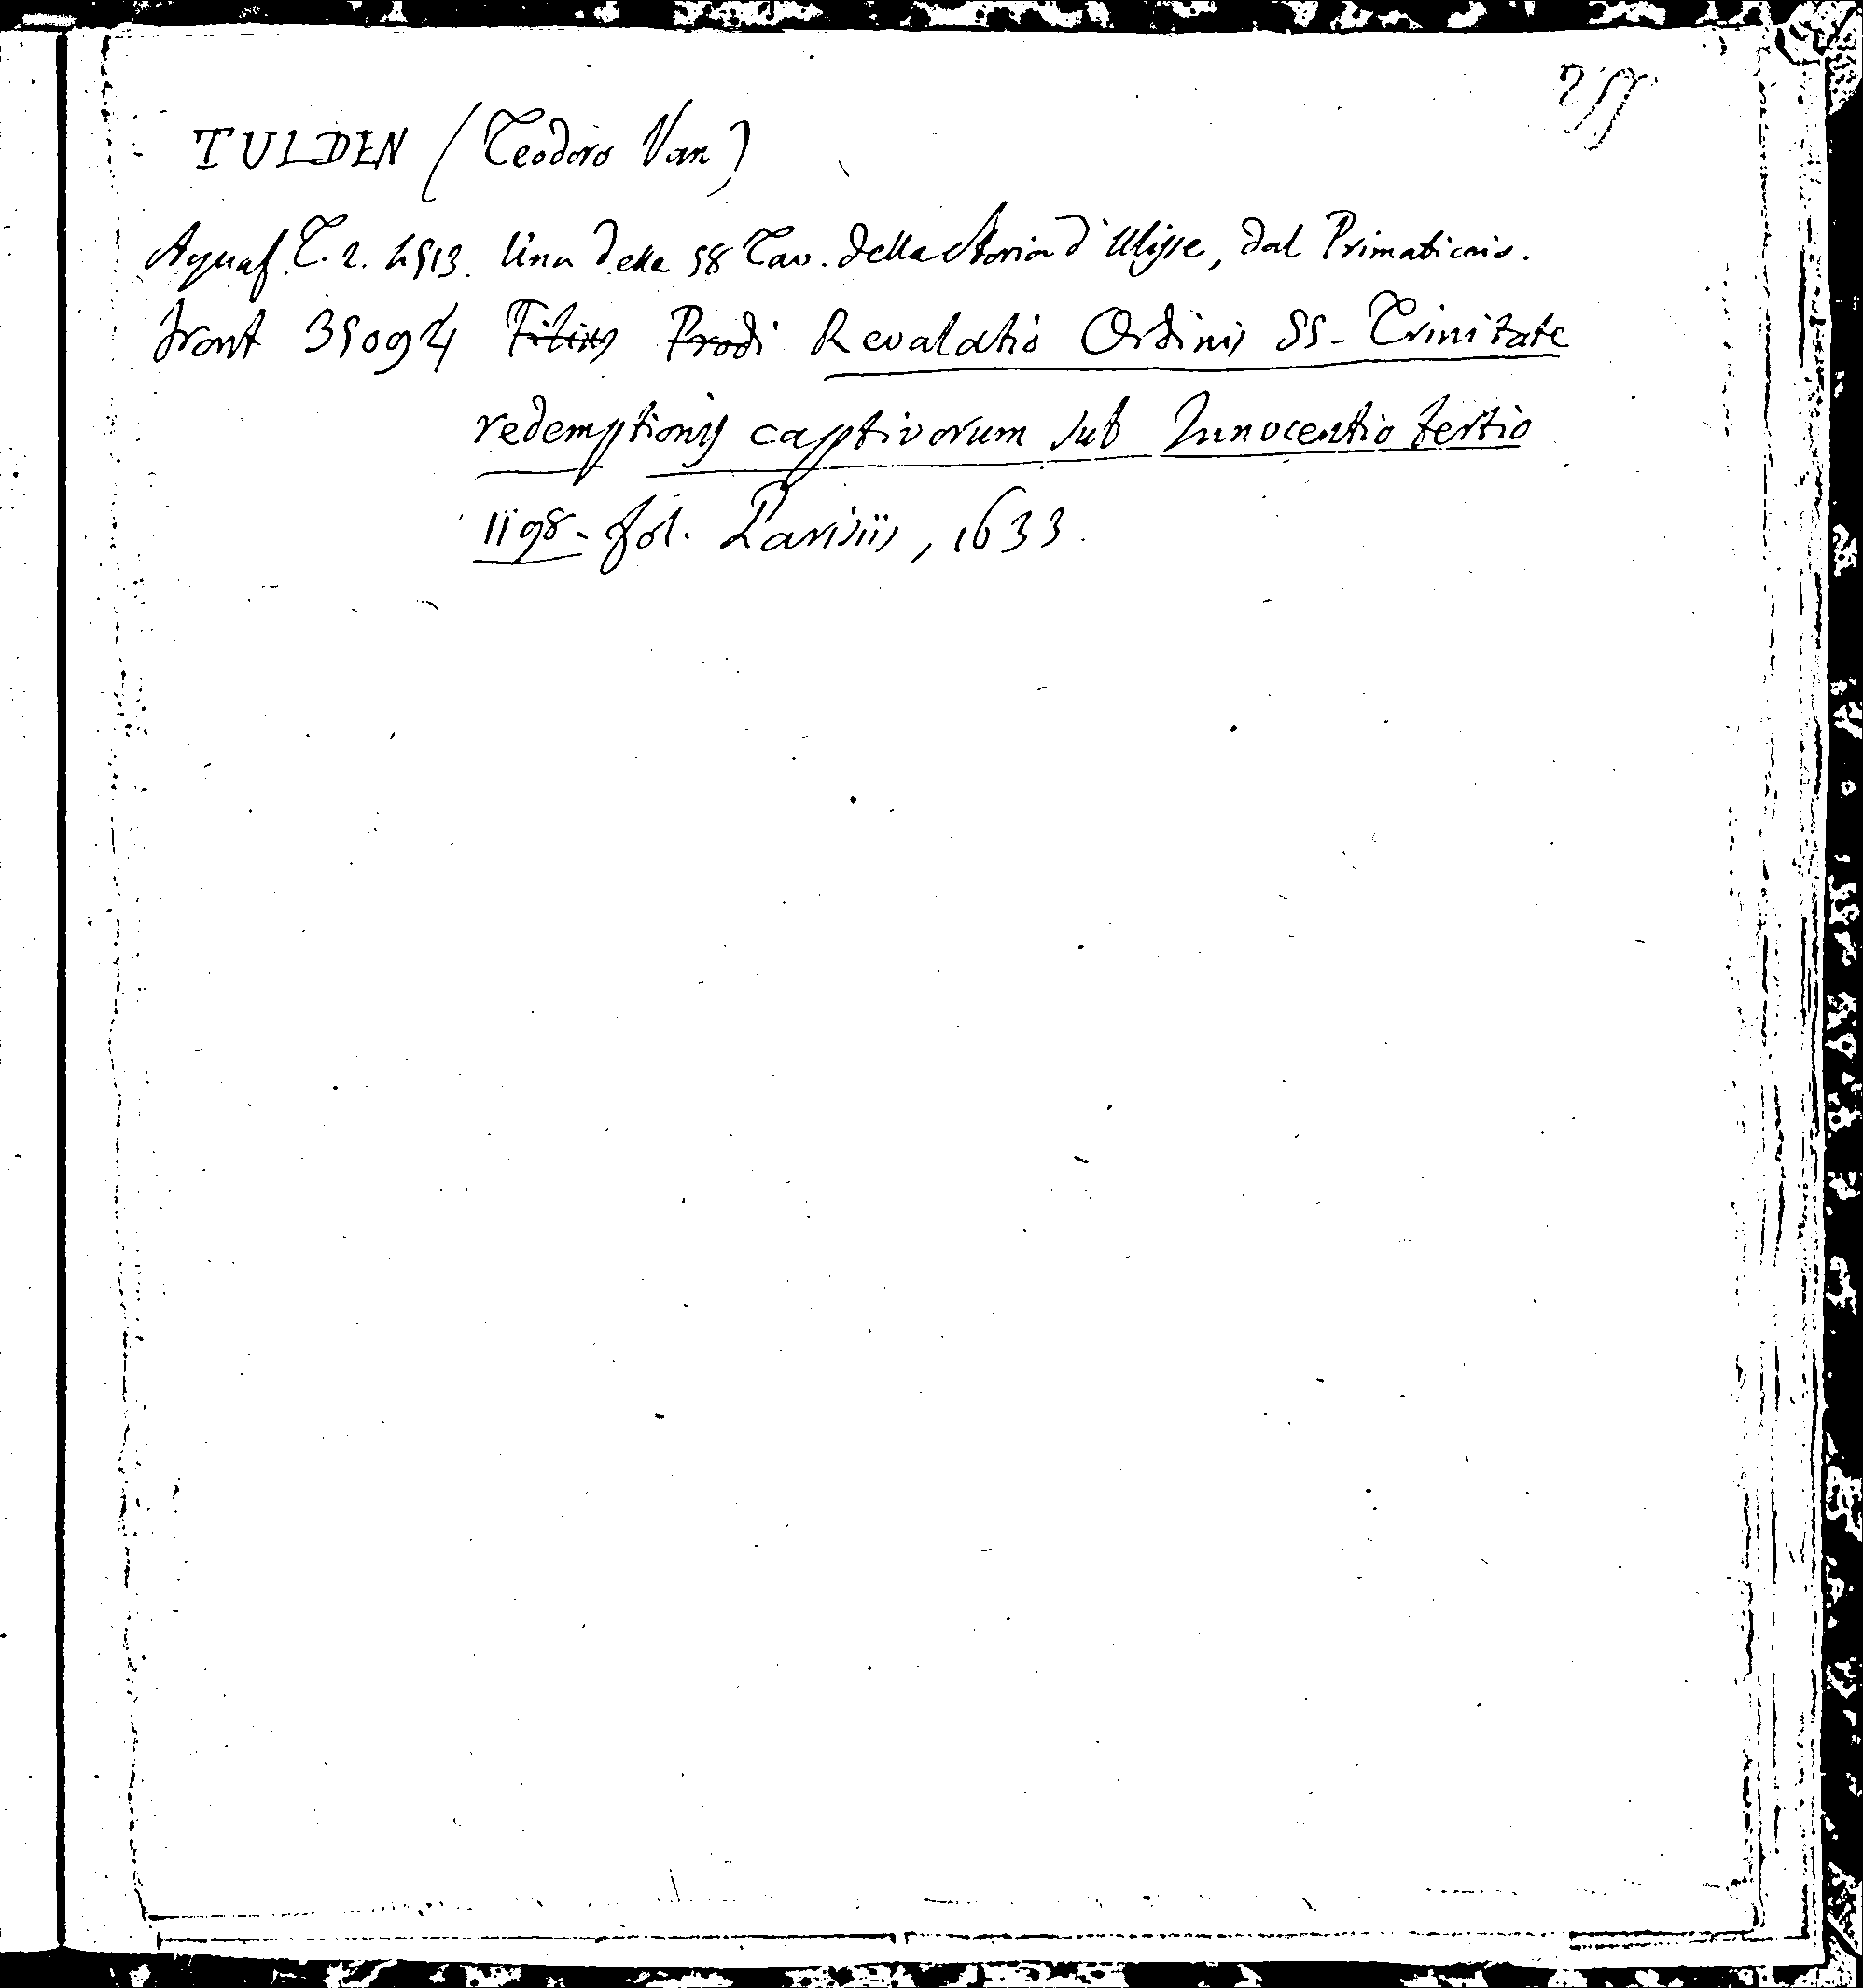 255
TULDEN (Teodoro Van)
Aquaf. T. 2. 2513. Una delle 58 Tav. della Storia d'Ulisse, dal Primaticcio.
front 35094 Filius Prodi Revalatio Ordinis SS- Trinitate
redemptionis captivorum sub Innocentio tertio
1198- fol. Parisiis, 1633.